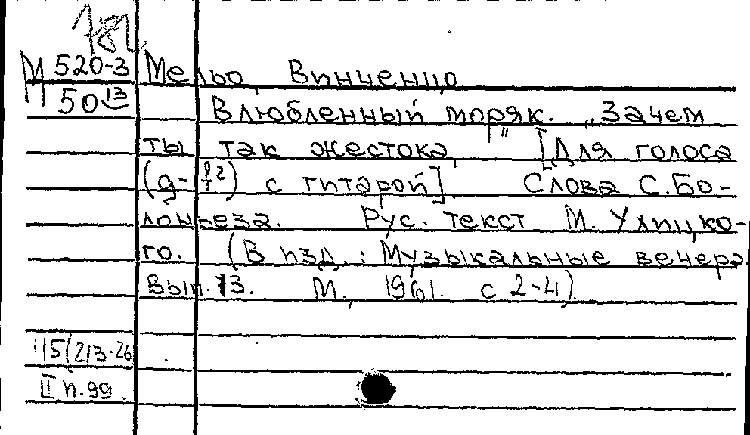 182
М 520-3
50 13
Мельо, Винченцо
Влюбленный моряк. „Зачем
ты так жестока" [Для голоса
(g-f2) с гитарой] Слова С. Бо-
лоньеза. Рус. текст М. Улицко-
го. (В изд.: Музыкальные вечера.
Вып. 13. М., 1961. с 2-4)
115/213-26
II п. 99